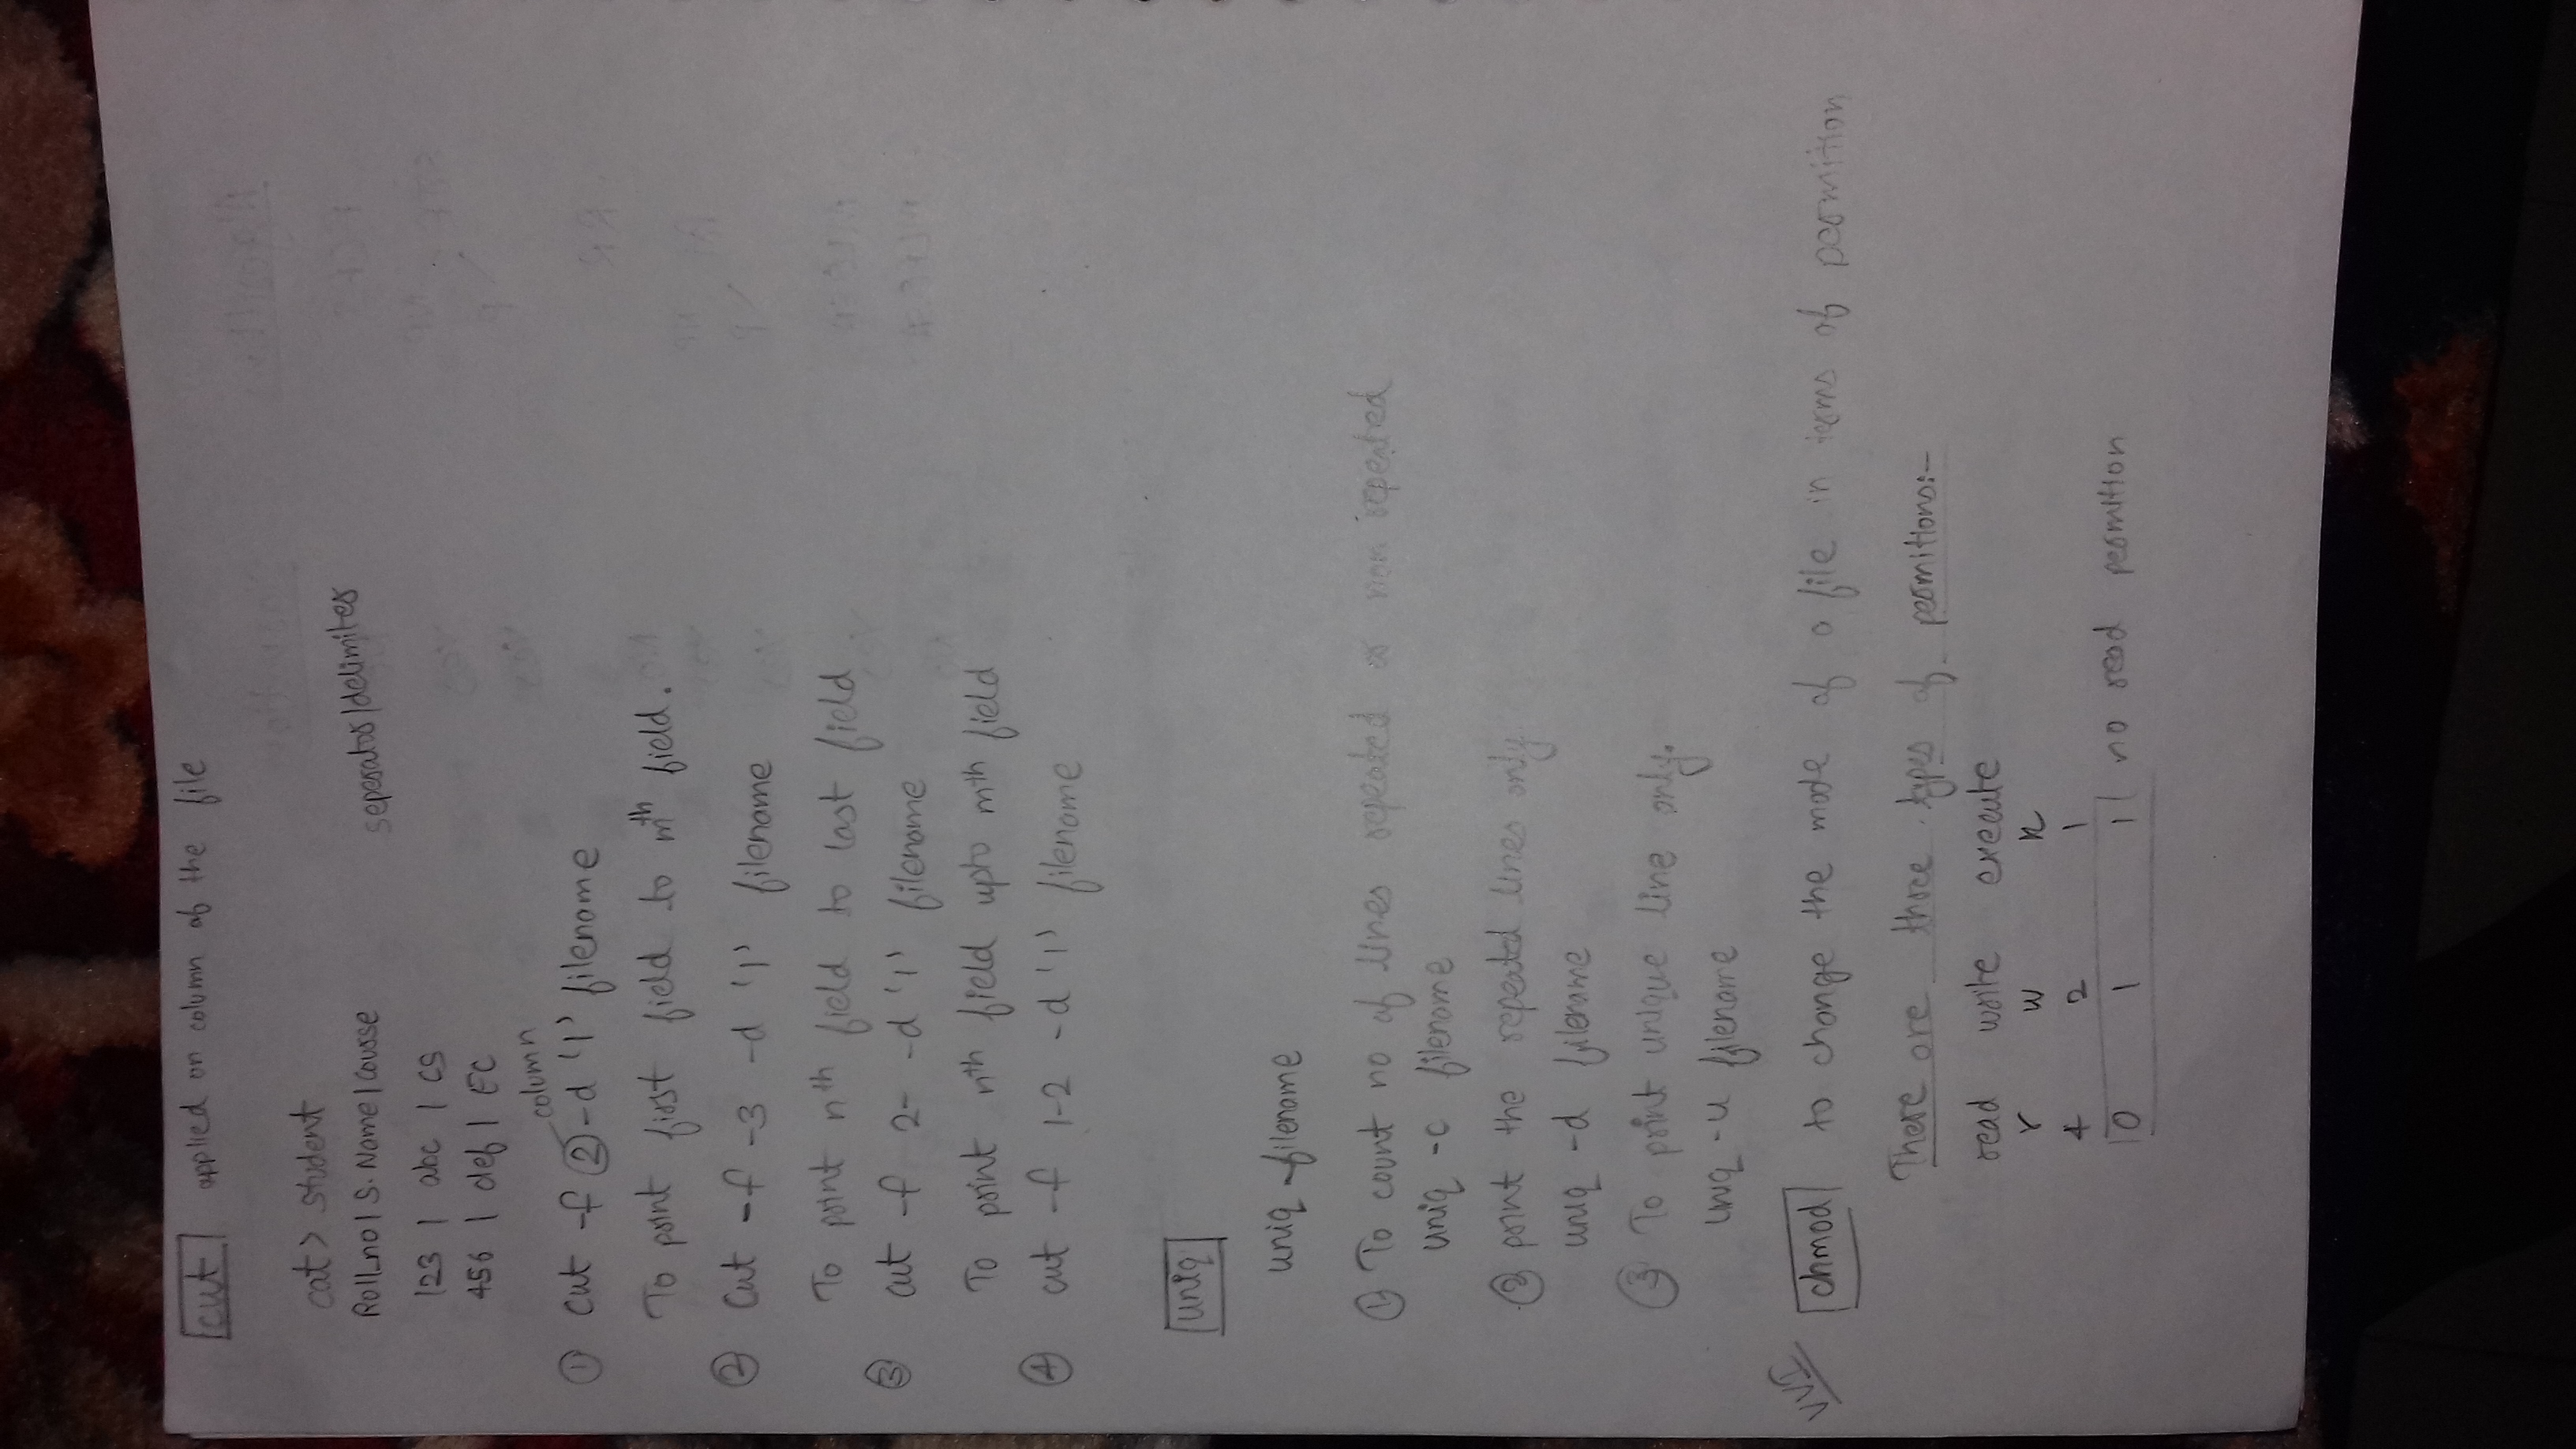 cut applied on column of the file
cat > student
Roll_no | S. Name | Course
seperator/delimiter
123 | abc | CS
456 | def | EC
column
① cut -f ② -d '|' filename
To print first field to mth field.
② cut -f -3 -d '|' filename
To print nth field to last field
③ cut -f 2- -d '|' filename
To print nth field upto mth field
④ cut -f 1-2 -d '|' filename
uniq
uniq filename
① To count no of lines repeated or non repeated
uniq -c filename
② print the repeated lines only
uniq -d filename
③ To print unique line only.
uniq -u filename
VVI chmod to change the mode of a file in terms of permition
There are three types of permitions:-
read write execute
r w x
4 2 1
0 1 1 no read permition